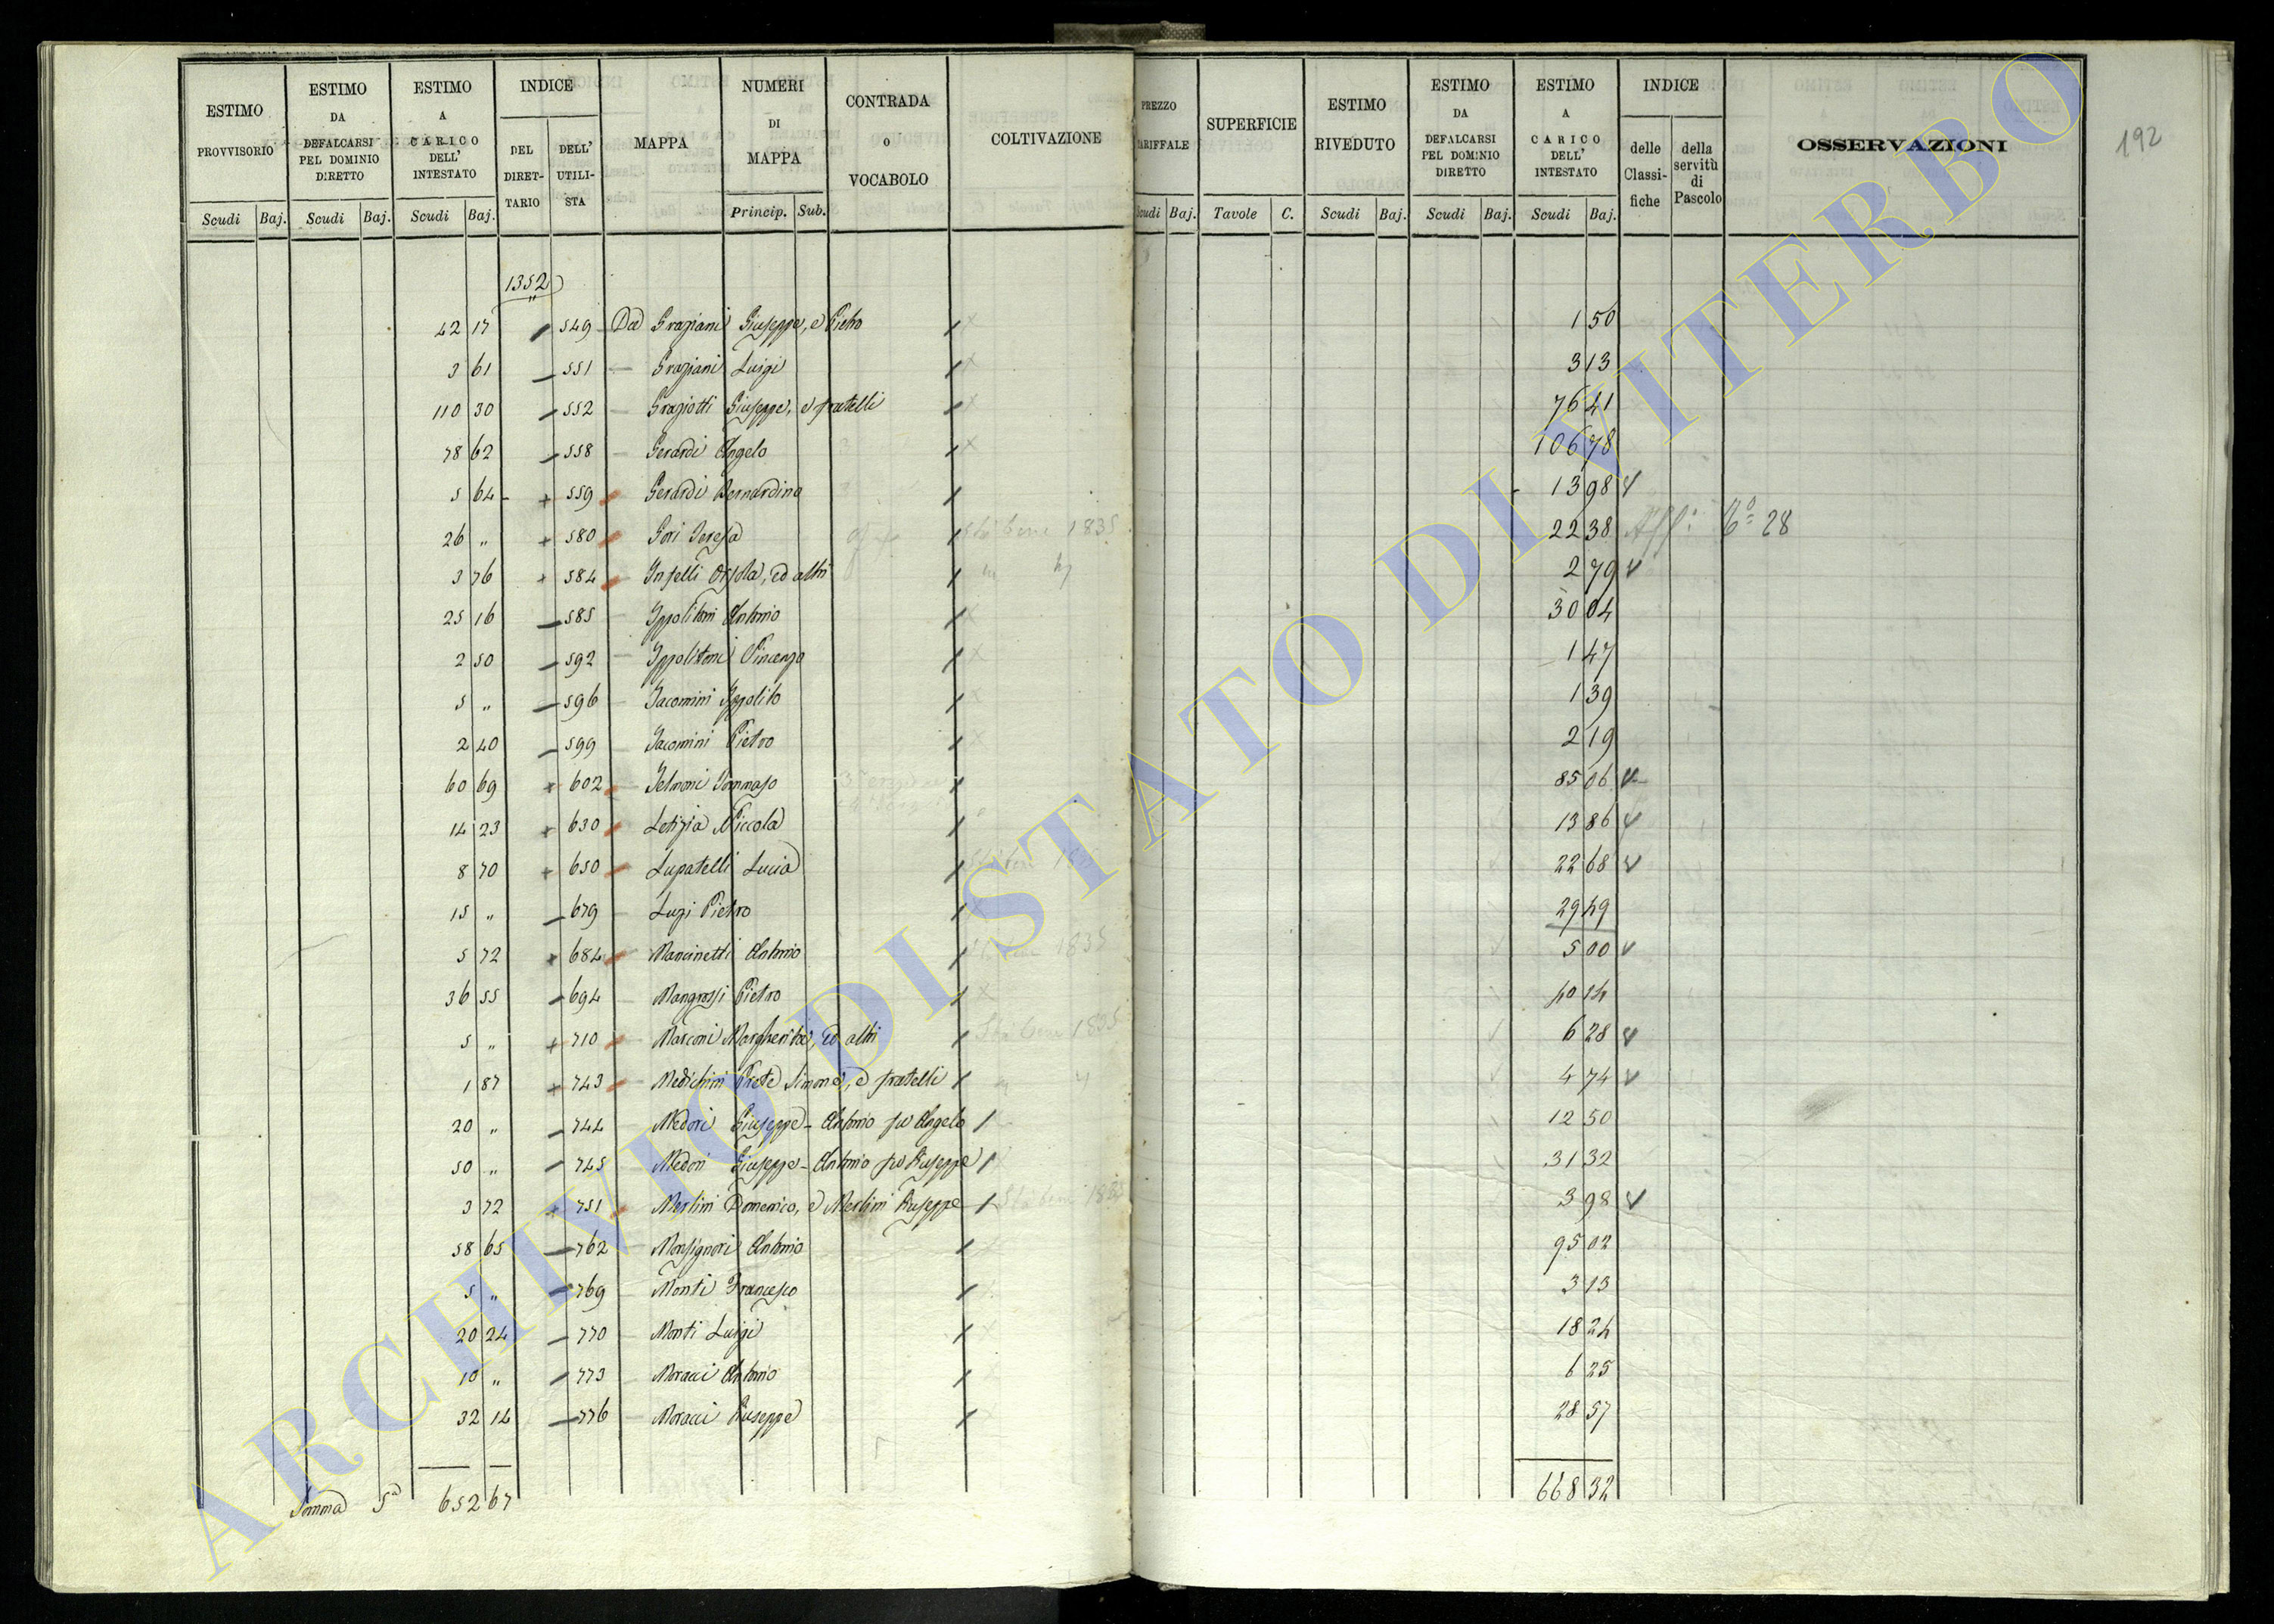 ESTIMO PROVVISORIO | ESTIMO DA DEFALCARSI PEL DOMINIO DIRETTO | ESTIMO A CARICO DELL' INTESTATO | INDICE DEL DIRET-TARIO | DELL' UTILI-STA | MAPPA | NUMERI DI MAPPA | CONTRADA o VOCABOLO | COLTIVAZIONE | PREZZO | SUPERFICIE | ESTIMO RIVEDUTO | ESTIMO DA DEFALCARSI PEL DOMINIO DIRETTO | ESTIMO A CARICO DELL' INTESTATO | INDICE delle Classi-fiche | della servitù di Pascolo | OSSERVAZIONI | 192
Scudi Baj. Scudi Baj. Scudi Baj. Princip. Sub. Baj. Tavole C. Scudi Baj. Scudi Baj. Scudi Baj.
1352
42 17 549 Da Graziani Giuseppe, e Pietro 1 50
3 61 551 Graziani Luigi 3 13
110 30 552 Graziotti Giuseppe, e fratelli 76 41
78 62 558 Gerardi Angelo 106 78
5 64 559 Gerardi Bernardino 13 98
26 " 580 Gori Teresa 22 38 28
3 76 584 Orsola, ed altri 2 79
25 16 585 Ippolitoni Antonio 30 04
2 50 592 Ippolitoni Vincenzo 1 47
5 " 596 Iacomini Ippolito 1 39
2 40 599 Iacomini Pietro 2 19
60 69 602 Tommaso 85 06
14 23 630 Letizia Niccola 13 86
8 70 650 Lupatelli Lucia 22 68
15 " 679 Luzi Pietro 29 49
5 72 684 Mancinetti Antonio 1835 5 00
36 55 694 Mangrossi Pietro 40 14
5 " 710 Marconi Margherita, ed altri 1835 6 28
1 87 743 Medichini Prete Simone, e fratelli 4 74
20 " 744 Medori Giuseppe-Antonio fu Angelo 12 50
50 " 745 Medori Giuseppe-Antonio fu Giuseppe 31 32
3 72 751 Merlini Domenico, e Merlini Giuseppe 3 98
58 65 762 Monsignori Antonio 95 02
5 " 769 Monti Francesco 3 13
20 24 770 Monti Luigi 18 24
10 " 773 Moracci Antonio 6 25
32 14 776 Moracci Giuseppe 28 57
Somma 652 67 668 32
ARCHIVIO DI STATO DI VITERBO